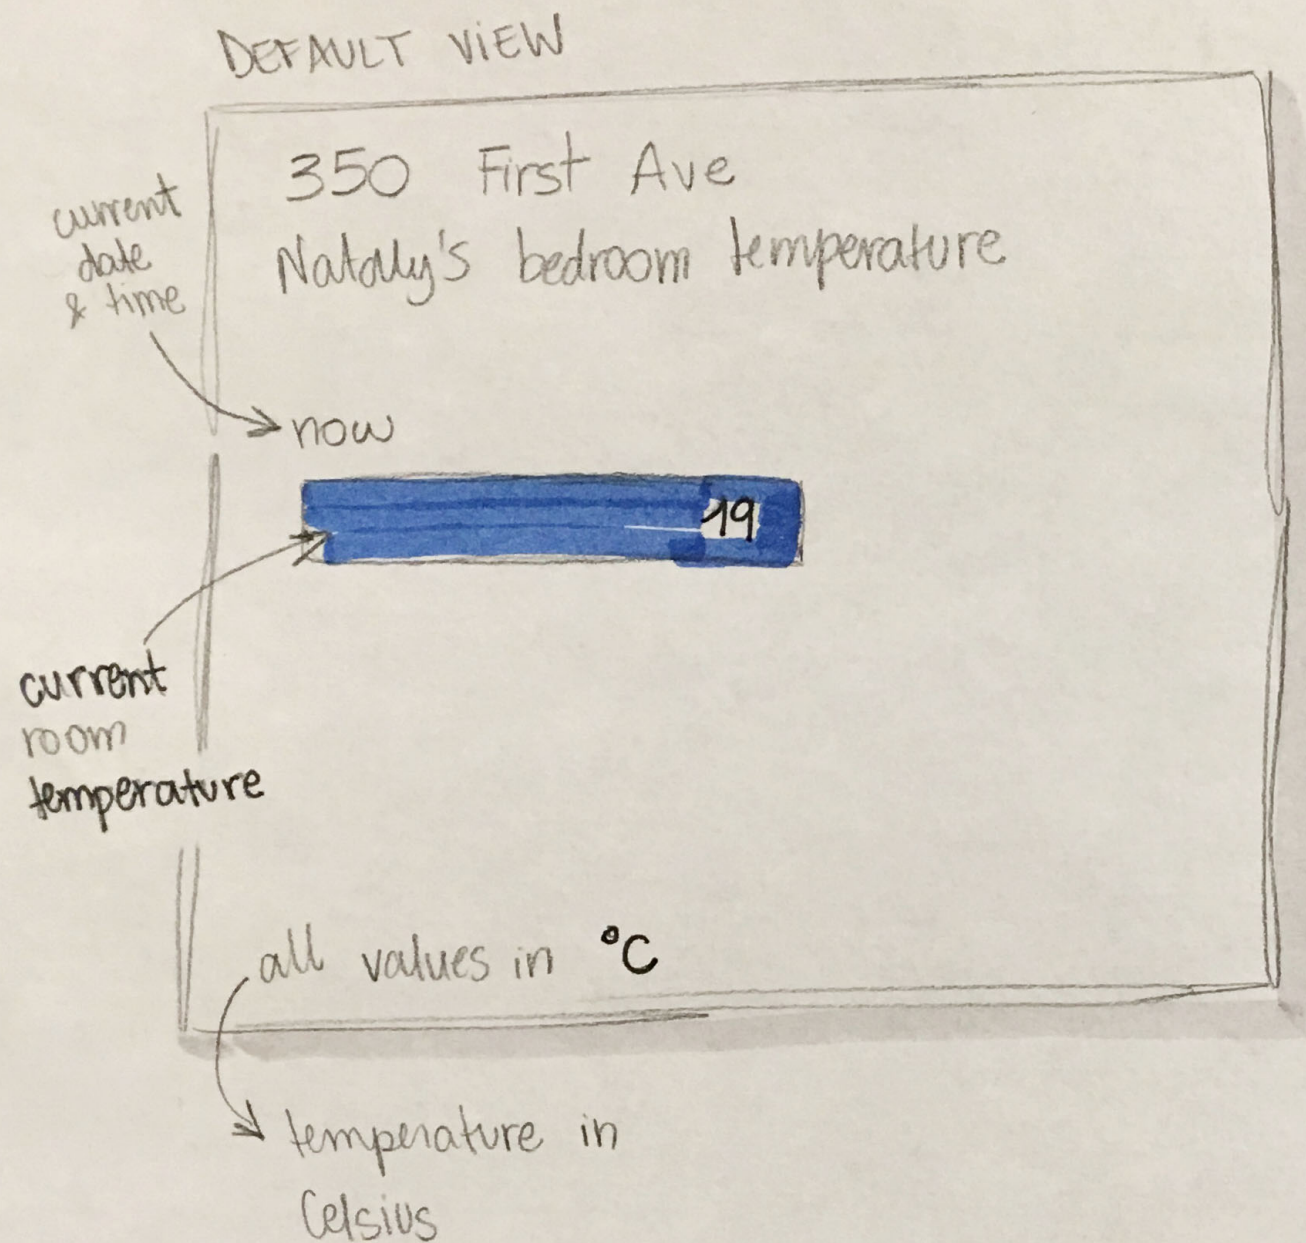 DEFAULT VIEW
350 First Ave
Nataly's bedroom temperature
current
date
& time
now
19
current
room
temperature
all values in °C
temperature in
Celsius